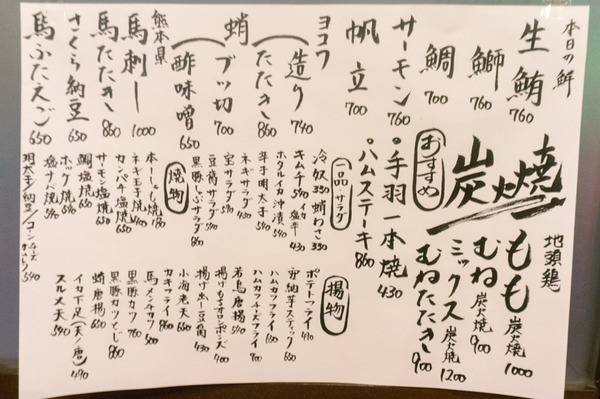 本日の鮮
生鮪 760
鰤 760
鯛 700
サーモン 760
帆立 700
ヨコワ
造り 740
たたき 860
蛸
ブツ切 700
酢味噌 650
熊本県
馬刺し 1000
馬たたき 860
さくら納豆 650
馬ふたえごへ 650
地頭鶏
炭火焼
もも炭火焼 1000
むね炭火焼 900
ミックス炭火焼 1200
むねたたき 900
おすすめ
手羽一本焼 430
ハムステーキ 860
一品・サラダ
冷奴 330 蛸わさ 330
キムチ 540 イカ塩辛 430
ホタルイカ沖漬 540
辛子明太子 540
ネギサラダ 430
宝サラダ 590
豆腐サラダ 590
黒豚しゃぶサラダ 860
焼物
本ししゃも焼 180
ネギ玉子焼 400
カンパチ塩焼 650
サーモン塩焼 650
鯛塩焼 650
ホッケ焼 590
塩サバ焼 540
明太子/納豆/コーンチーズ 540
揚物
ポテトフライ 490
安納芋スティック 650
ハムカツフライ 650
ハムカツチーズフライ 700
若鳥唐揚 590
揚げもちろポンズ 400
揚げ出し豆腐 430
小海老天 650
カキフライ 650
馬メンチカツ 500
黒豚カツ 760
黒豚カツとじ 860
蛸唐揚 650
イカ下足(天/唐) 490
スルメ天 540